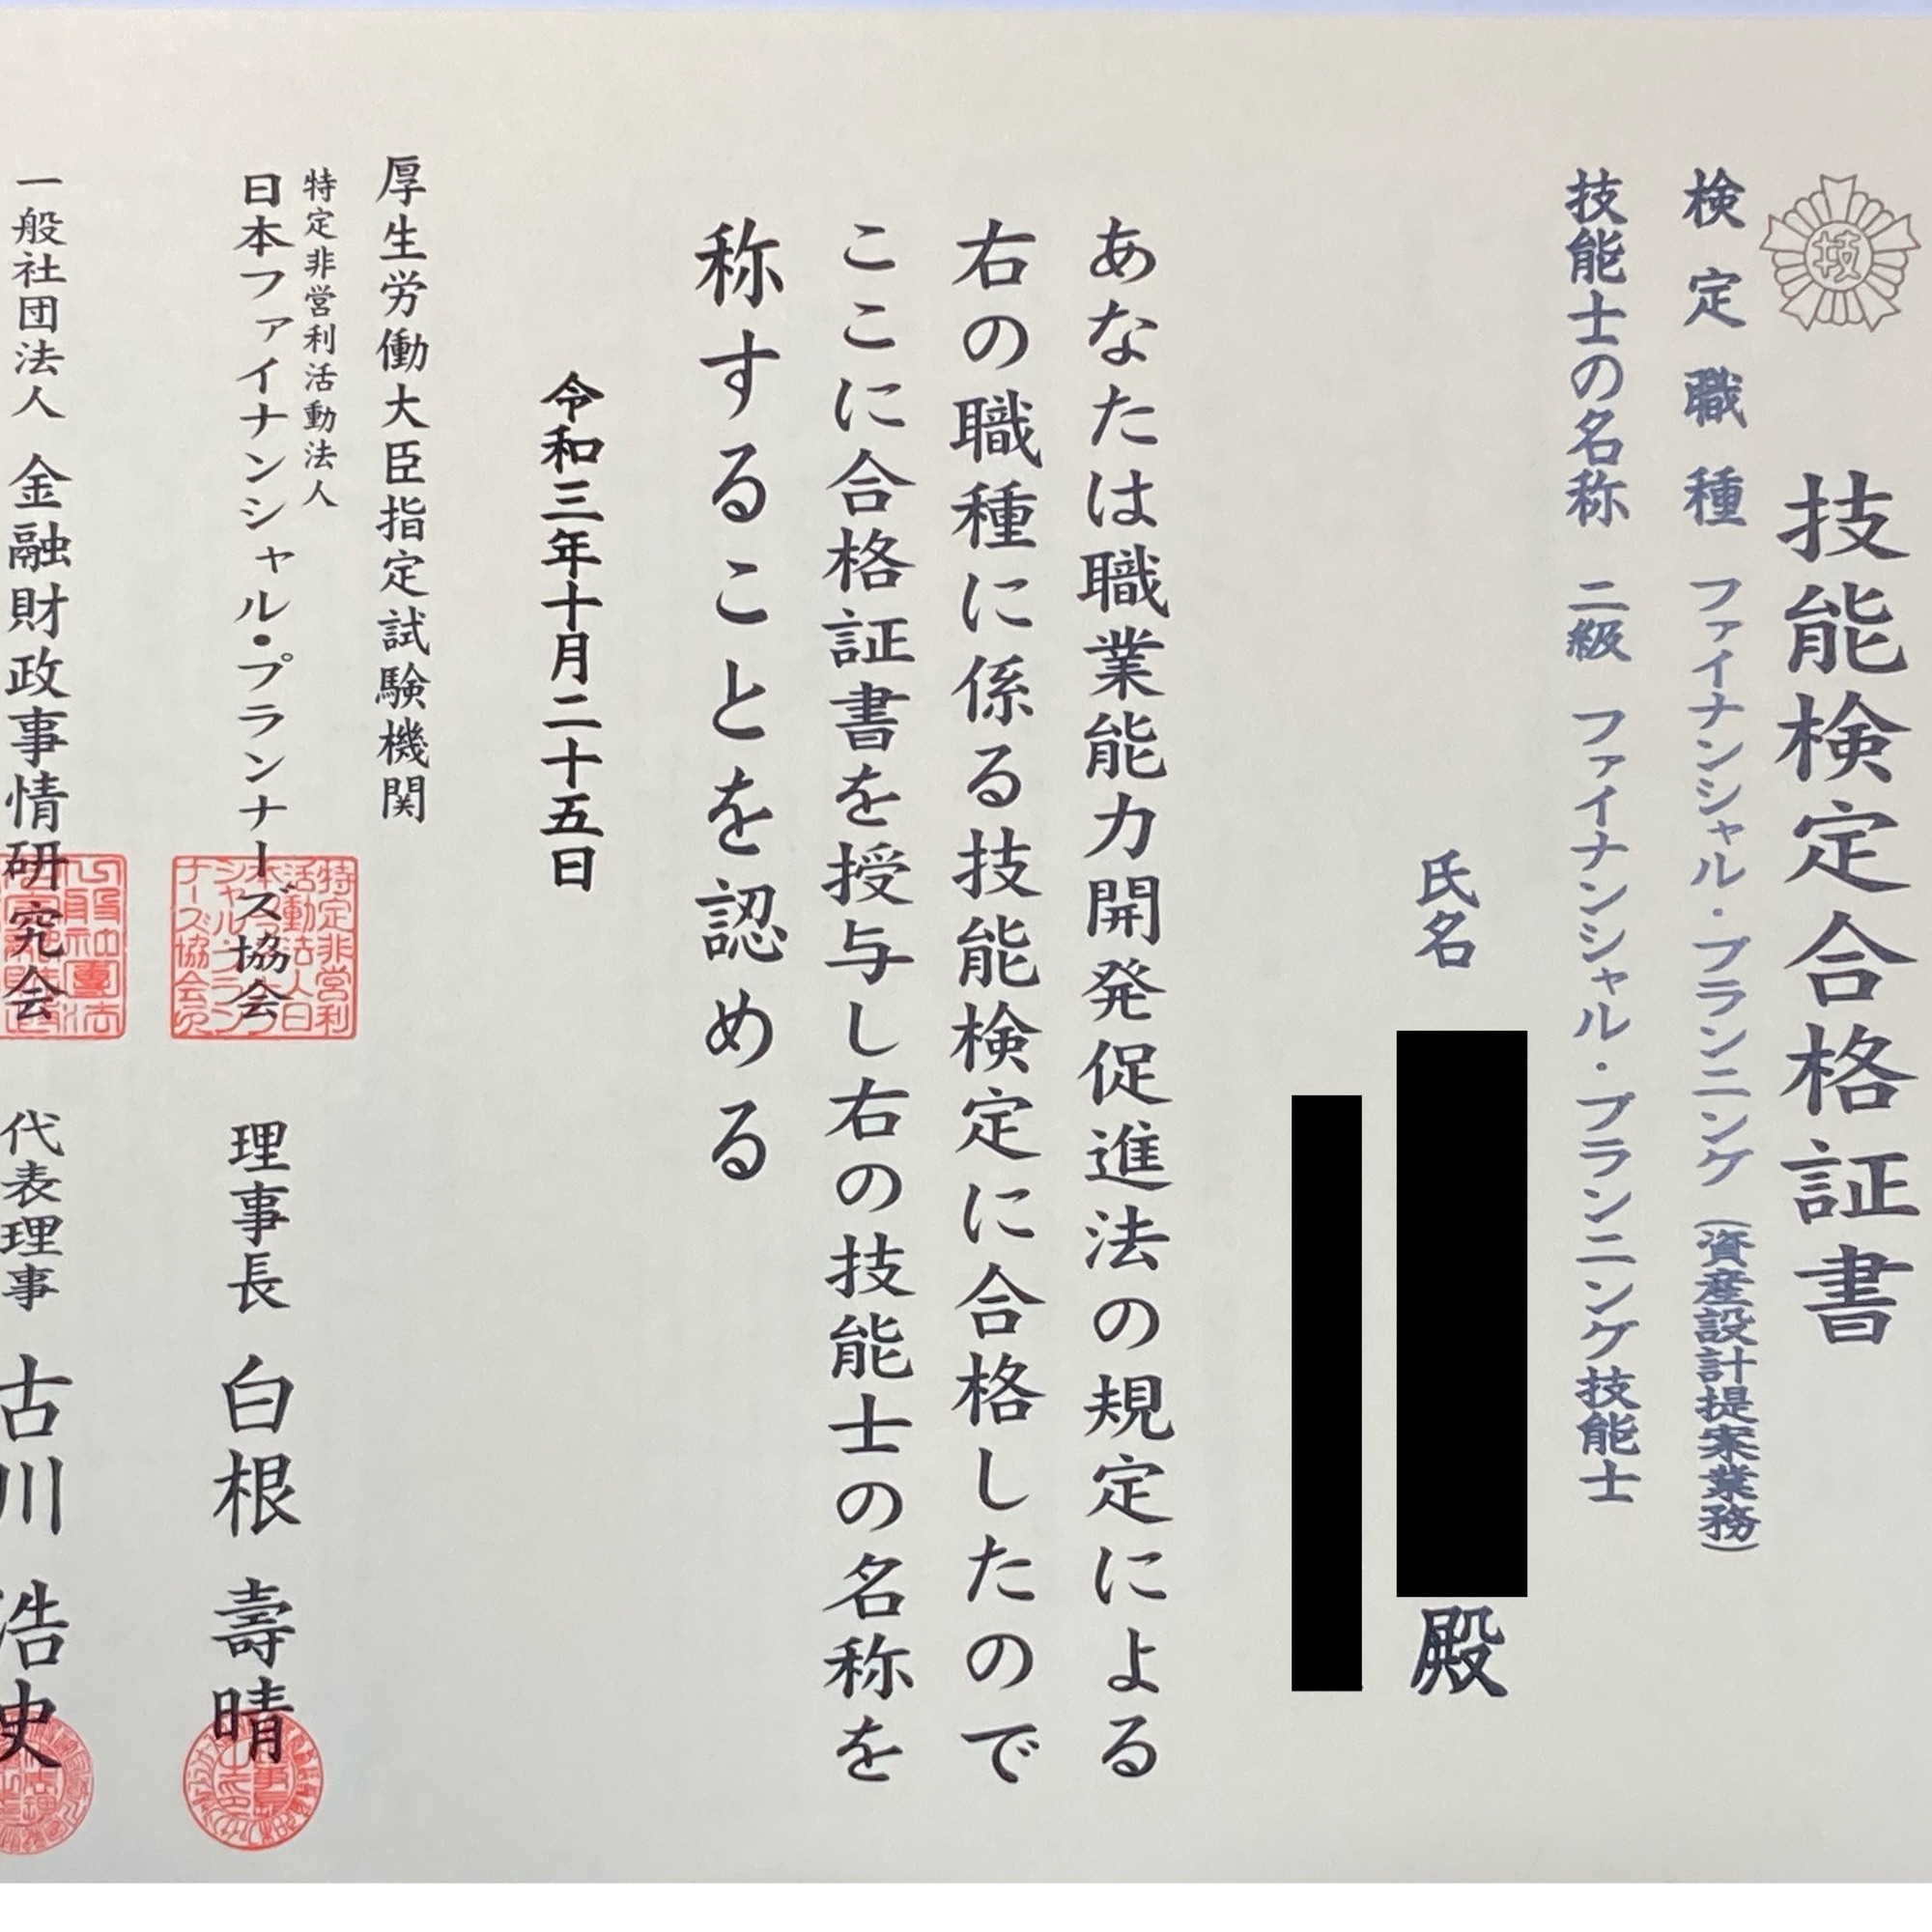 技
技能検定合格証書
検定職種 ファイナンシャル・プランニング(資産設計提案業務)
技能士の名称 二級 ファイナンシャル・プランニング技能士
氏名 殿
あなたは職業能力開発促進法の規定による
右の職種に係る技能検定に合格したので
ここに合格証書を授与し右の技能士の名称を
称することを認める
令和三年十月二十五日
厚生労働大臣指定試験機関
特定非営利活動法人
日本ファイナンシャル・プランナーズ協会 理事長 白根 壽晴
一般社団法人 金融財政事情研究会 代表理事 古川 浩史